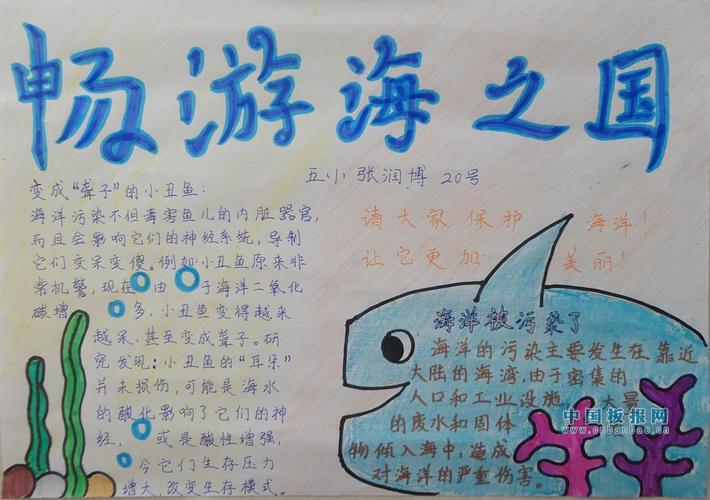 畅游海之国
五小 张润博 20号
变成“聋子”的小丑鱼：
海洋污染不但毒害鱼儿的内脏器官,
而且会影响它们的神经系统，导制
它们变呆变傻。例如:小丑鱼原来非
常机警,现在 由 于海洋二氧化
碳增 多，小丑鱼变得越来
越呆，甚至变成聋子。研
究发现:小丑鱼的“耳朵”
并未损伤,可能是海水
的酸化影响了它们的神
经， 或是酸性增强,
令它们生存压力
增大,改变生存模式。
请大家保护 海洋！
让它更加 美丽！
海洋被污染了
海洋的污染主要发生在靠近
大陆的海湾,由于密集的
人口和工业设施。 大量
的废水和固体
物倾入海中,造成
对海洋的严重伤害。
中国板报网
www.cnbanbao.cn